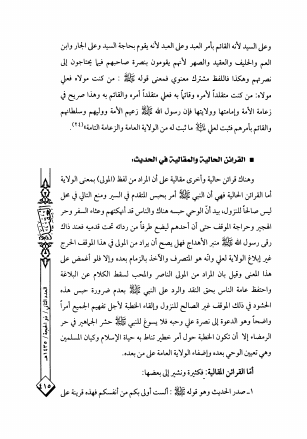 وعلى السيد لأنه القائم بأمر العبد وعلى العبد لأنه يقوم بحاجة السيد وعلى الجار وابن
العم والحليف والعقيد والصهر لأنهم يقومون بنصرة صاحبهم فيما يحتاجون إلى
نصرتهم وهكذا فاللفظ مشترك معنوي فمعنى قوله ﷺ : من كنت مولاه فعلي
مولاه: من كنت متقلداً لأمره وقائماً به فعلي متقلد أمره والقائم به وهذا صريح في
زعامة الأمة وإمامتها وولايتها فإن رسول الله ﷺ زعيم الأمة ووليهم وسلطانهم
والقائم بأمرهم فثبت لعلي ﷺ ما ثبت له من الولاية العامة والزعامة التامة»(٢٤).
▪ القرائن الحالية والمقالية في الحديث:
وهناك قرائن حالية وأخرى مقالية على أن المراد من لفظ (المولى) بمعنى الولاية
أما القرائن الحالية فهي أن النبي ﷺ أمر بحبس المتقدم في السير ومنع التالي في محل
ليس صالحاً للنزول، بيد أنّ الوحي حبسه هناك والناس قد أنهكتهم وعثاء السفر وحر
الهجير وحراجة الموقف حتى أن أحدهم ليضع طرفاً من ردائه تحت قدميه فعند ذاك
رقى رسول الله ﷺ منبر الأهداج فهل يصح أن يراد من المولى في هذا الموقف الحرج
غير إبلاغ الولاية لعلي وأنّه هو المتصرف والآخذ بالزمام بعده وإلا فلو أغمض على
هذا المعنى وقيل بان المراد من المولى الناصر والمحب لسقط الكلام عن البلاغة
واحتفظ عامة الناس بحق النقد والرد على النبي ﷺ بعدم ضرورة حبس هذه
الحشود في ذلك الموقف غير الصالح للنزول وإلقاء الخطبة لأجل تفهيم الجميع أمراً
واضحاً وهو الدعوة إلى نصرة علي وحبه فلا يسوغ للنبي ﷺ حشر الجماهير في حر
الرمضاء إلا أن تكون الخطبة حول أمر خطير تناط به حياة الإسلام وكيان المسلمين
وهي تعيين الوحي بعده وإضفاء الولاية العامة على من بعده.
أمّا القرائن المقالية: فكثيرة ونشير إلى بعضها:
١ـ صدر الحديث وهو قوله ﷺ : ألست أولى بكم من أنفسكم فهذه قرينة على
العدد الثاني / ذو الحجة / ١٤٣٥هـ
١١٥